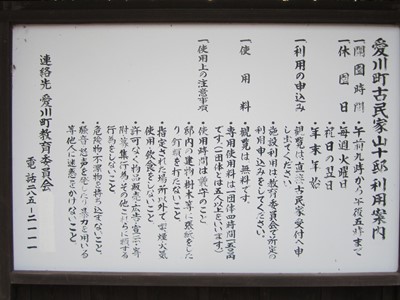 愛川町古民家山十邸 利用案内
一開園時間・午前九時から午後五時まで
一休園日・毎週火曜日
・祝日の翌日
・年末年始
一利用の申込み 観覧は、直接古民家受付へ申
し出てください。
施設利用は、教育委員会で所定の
利用申込みをしてください。
一使用料・観覧は無料です。
専用使用料は一団体四時間
です。(一団体とは五人以上をいいます)
一使用上の注意事項 使用時間は厳守のこと
邸内の建物、樹木等に張紙をした
り釘類を打たないこと。
指定された場所以外で喫煙、火気
使用、飲食をしないこと
許可なく物品販売、広告、宣伝、寄
附募集行為、その他これらに類する
行為をしないこと。
危険物、不潔物を持ち込まないこと。
騒音、怒声を発したり、暴力を用いる
等他人に迷惑をかけないこと
連絡先 愛川町教育委員会
電話二八五-二一一一